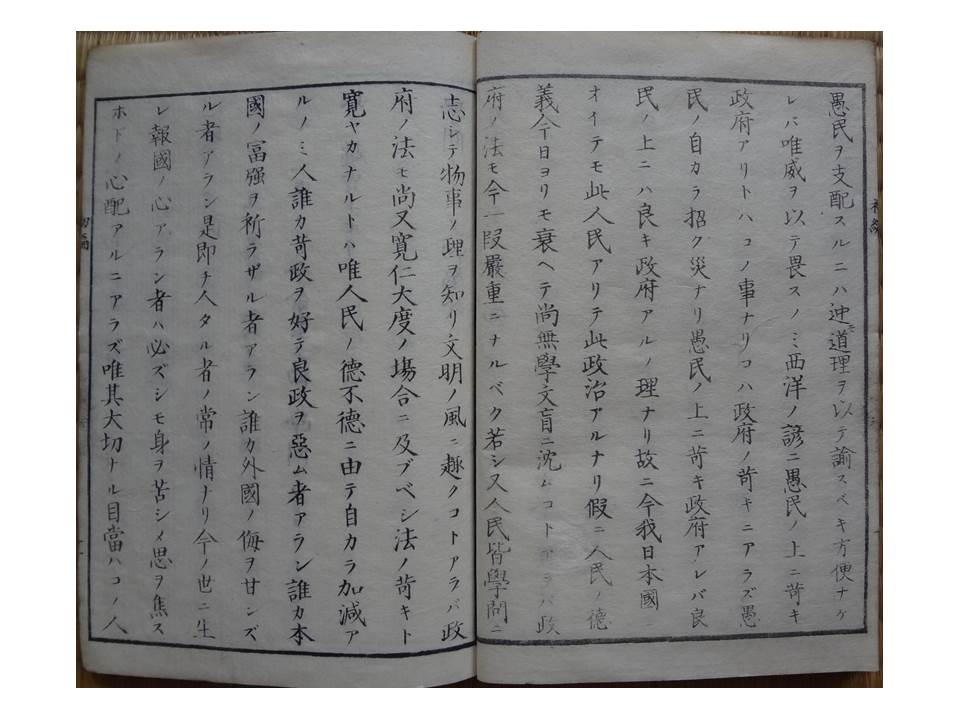 愚民ヲ支配スルニハ迚モ道理ヲ以テ諭スベキ方便ナケ
レバ唯威ヲ以テ畏スノミ西洋ノ諺ニ愚民ノ上ニ苛キ
政府アリトハコノ事ナリコハ政府ノ苛キニアラズ愚
民ノ自カラ招ク災ナリ愚民ノ上ニ苛キ政府アレバ良
民ノ上ニハ良キ政府アルノ理ナリ故ニ今我日本國ニ
オイテモ此人民アリテ此政治アルナリ假ニ人民ノ德
義今日ヨリモ衰ヘテ尚無學文盲ニ沈ムコトアラバ政
府ノ法モ今一段嚴重ニナルベク若シ又人民皆學問ニ
志シテ物事ノ理ヲ知リ文明ノ風ニ趣クコトアラバ政
府ノ法モ尚又寛仁大度ノ場合ニ及ブベシ法ノ苛キト
寛ヤカナルトハ唯人民ノ德不德ニ由テ自カラ加減ア
ルノミ人誰カ苛政ヲ好テ良政ヲ惡ム者アラン誰カ本
國ノ冨强ヲ祈ラザル者アラン誰カ外國ノ侮ヲ甘ンズ
ル者アラン是即チ人タル者ノ常ノ情ナリ今ノ世ニ生
レ報國ノ心アラン者ハ必ズシモ身ヲ苦シメ思ヲ焦ス
ホドノ心配アルニアラズ唯其大切ナル目當ハコノ人